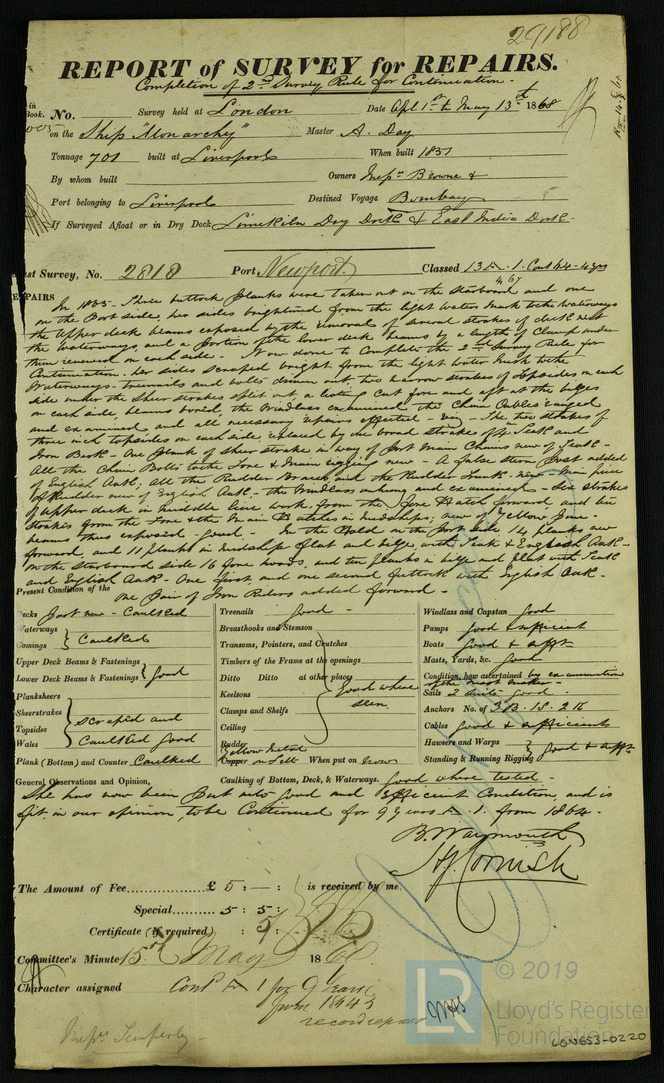 29188
REPORT of SURVEY for REPAIRS.
Completion of 2nd Survey Rule for Continuation -
No. Survey held at London Date Apl 1st to May 13th 1868
on the Ship "Monarchy" Master A. Day
Tonnage 701 built at Liverpool When built 1837
By whom built Owners Messrs Browne &
Port belonging to Liverpool Destined Voyage Bombay
If Surveyed Afloat or in Dry Dock Limekiln Dry Dock & East India Dock
Survey, No. 2818 Port Newport Classed 13 A. 1. Cont 64 - 4 yrs
In 1865 - Three buttock planks were taken out on the Starboard and one
on the Port side, her sides brightened from the light Water Mark to the Waterways
the Upper deck beams exposed by the removal of several strakes of deck next
the Waterways, and a portion of the lower deck beams by a length of Clamp under
them renewed on each side. - Now done to Complete the 2nd Survey Rule for
Continuation. her sides scraped bright from the light Water Mark to the
Waterways - treenails and bolts driven out, two narrow strakes of topsides on each
side under the Sheer strakes split out a listing Cut fore and aft at the bilges
on each side, beams bored, the Windlass examined the Chain Cables ranged
and examined and all necessary repairs effected - viz - The two strakes of
three inch topsides on each side, replaced by one broad strake of Teak and
Iron Bark - One plank of sheer strake in way of Port Main Chains new of Teak -
All the Chain Bolts to the Fore & Main rigging new - A false Stem Post added
of English Oak, all the Rudder Braces and the Rudder Trunk - new - Main piece
of Rudder new of English Oak, - the Windlass unhung and examined - Six strakes
of upper deck in middle line work from the Fore Hatch forward and ten
strakes from the Fore & the Main Hatches in Midships; new of Yellow Pine -
beams thus exposed - good. - In the Hold on the Port side 14 planks new
forward, and 11 planks in midship flat and bilge, with Teak & English Oak -
On the Starboard side 16 fore hoods, and ten planks in bilge and flat with Teak
and English Oak - One first and one second futtock with English Oak. -
Present Condition of the one Pair of Iron Riders added forward. -
Decks Part new - Caulked
Waterways
Comings } Caulked
Upper Deck Beams & Fastenings
Lower Deck Beams & Fastenings } good
Planksheers
Sheerstrakes
Topsides
Wales } scraped and Caulked good
Plank (Bottom) and Counter Caulked
Treenails Good -
Breasthooks and Stemson
Transoms, Pointers, and Crutches
Timbers of the Frame at the openings
Ditto Ditto at other places
Keelsons
Clamps and Shelfs
Ceiling
Rudder
} Good where seen
Yellow Metal
Copper on Felt When put on now
Caulking of Bottom, Deck, & Waterways. Good where tested -
Windlass and Capstan Good
Pumps Good & sufficient
Boats Good & sufft
Masts, Yards, &c. Good
Condition, how ascertained by examination
of the mast maker -
Sails 2 Suits - Good -
Anchors No. of 3 B. 1 S. 2 K
Cables Good & sufficient
Hawsers and Warps
Standing & Running Rigging } Good & sufft
General Observations and Opinion,
She has now been put into good and Efficient Condition, and is
fit, in our opinion, to be Continued for 9 years A. 1. from 1864.
B. Waymouth
H J Cornish
The Amount of Fee............... £ 5 : - : is received by me
Special......... 5 : 5 :
Certificate (if required) : 5 :
Committee's Minute 15th May 1868
Character assigned Cont A 1 for 9 Years
from 1864
record repairs
Messrs Temperley -
LR
© 2019
Lloyd's Register
Foundation
LON653-0220